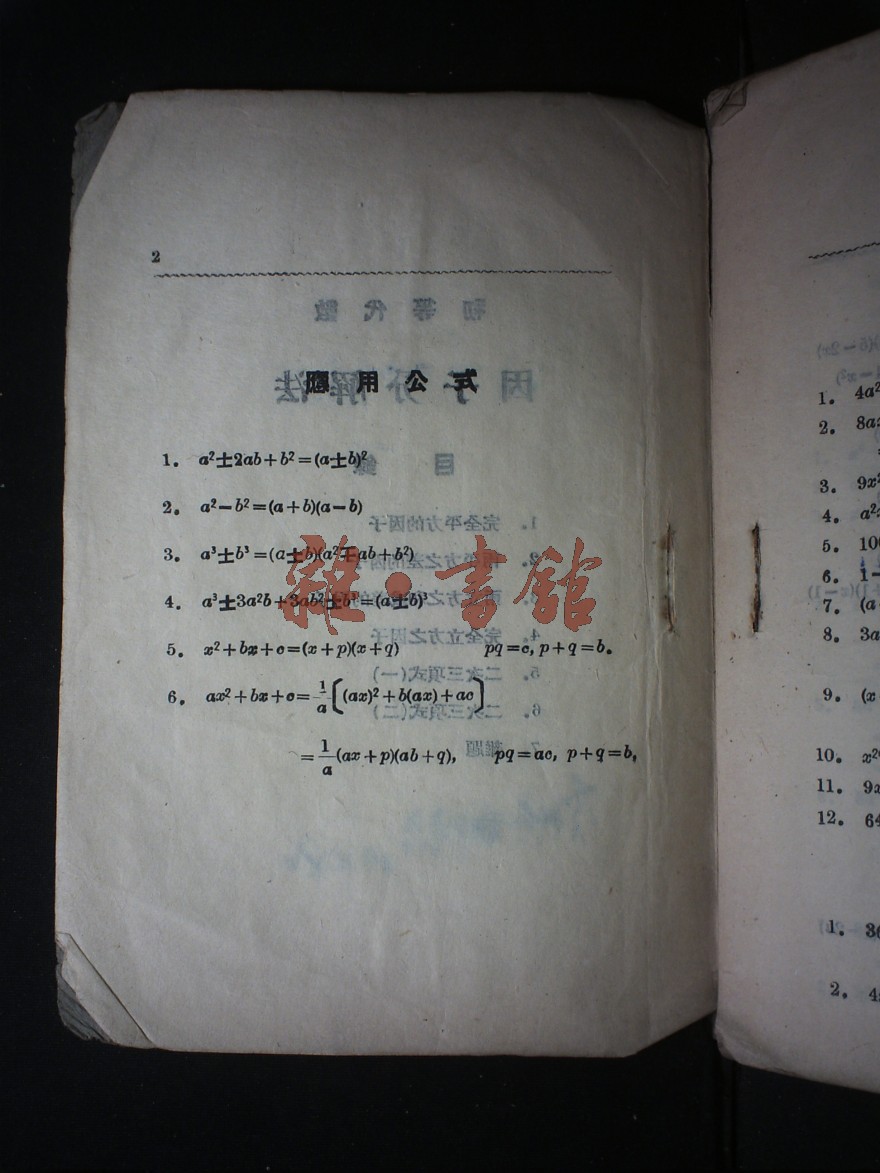 2
應用公式
1. a²±2ab+b²=(a±b)²
2. a²-b²=(a+b)(a-b)
3. a³±b³=(a±b)(a²∓ab+b²)
4. a³±3a²b+3ab²±b³=(a±b)³
5. x²+bx+c=(x+p)(x+q) pq=c, p+q=b.
6. ax²+bx+c=1/a[(ax)²+b(ax)+ac]
=1/a(ax+p)(ab+q), pq=ac, p+q=b,
雜·書館
1. 4a²
2. 8a
3. 9x²
4. a²
5. 10
6. 1-
7. (a
8. 3a
9. (x
10. x²
11. 9
12. 64
1. 3
2. 4